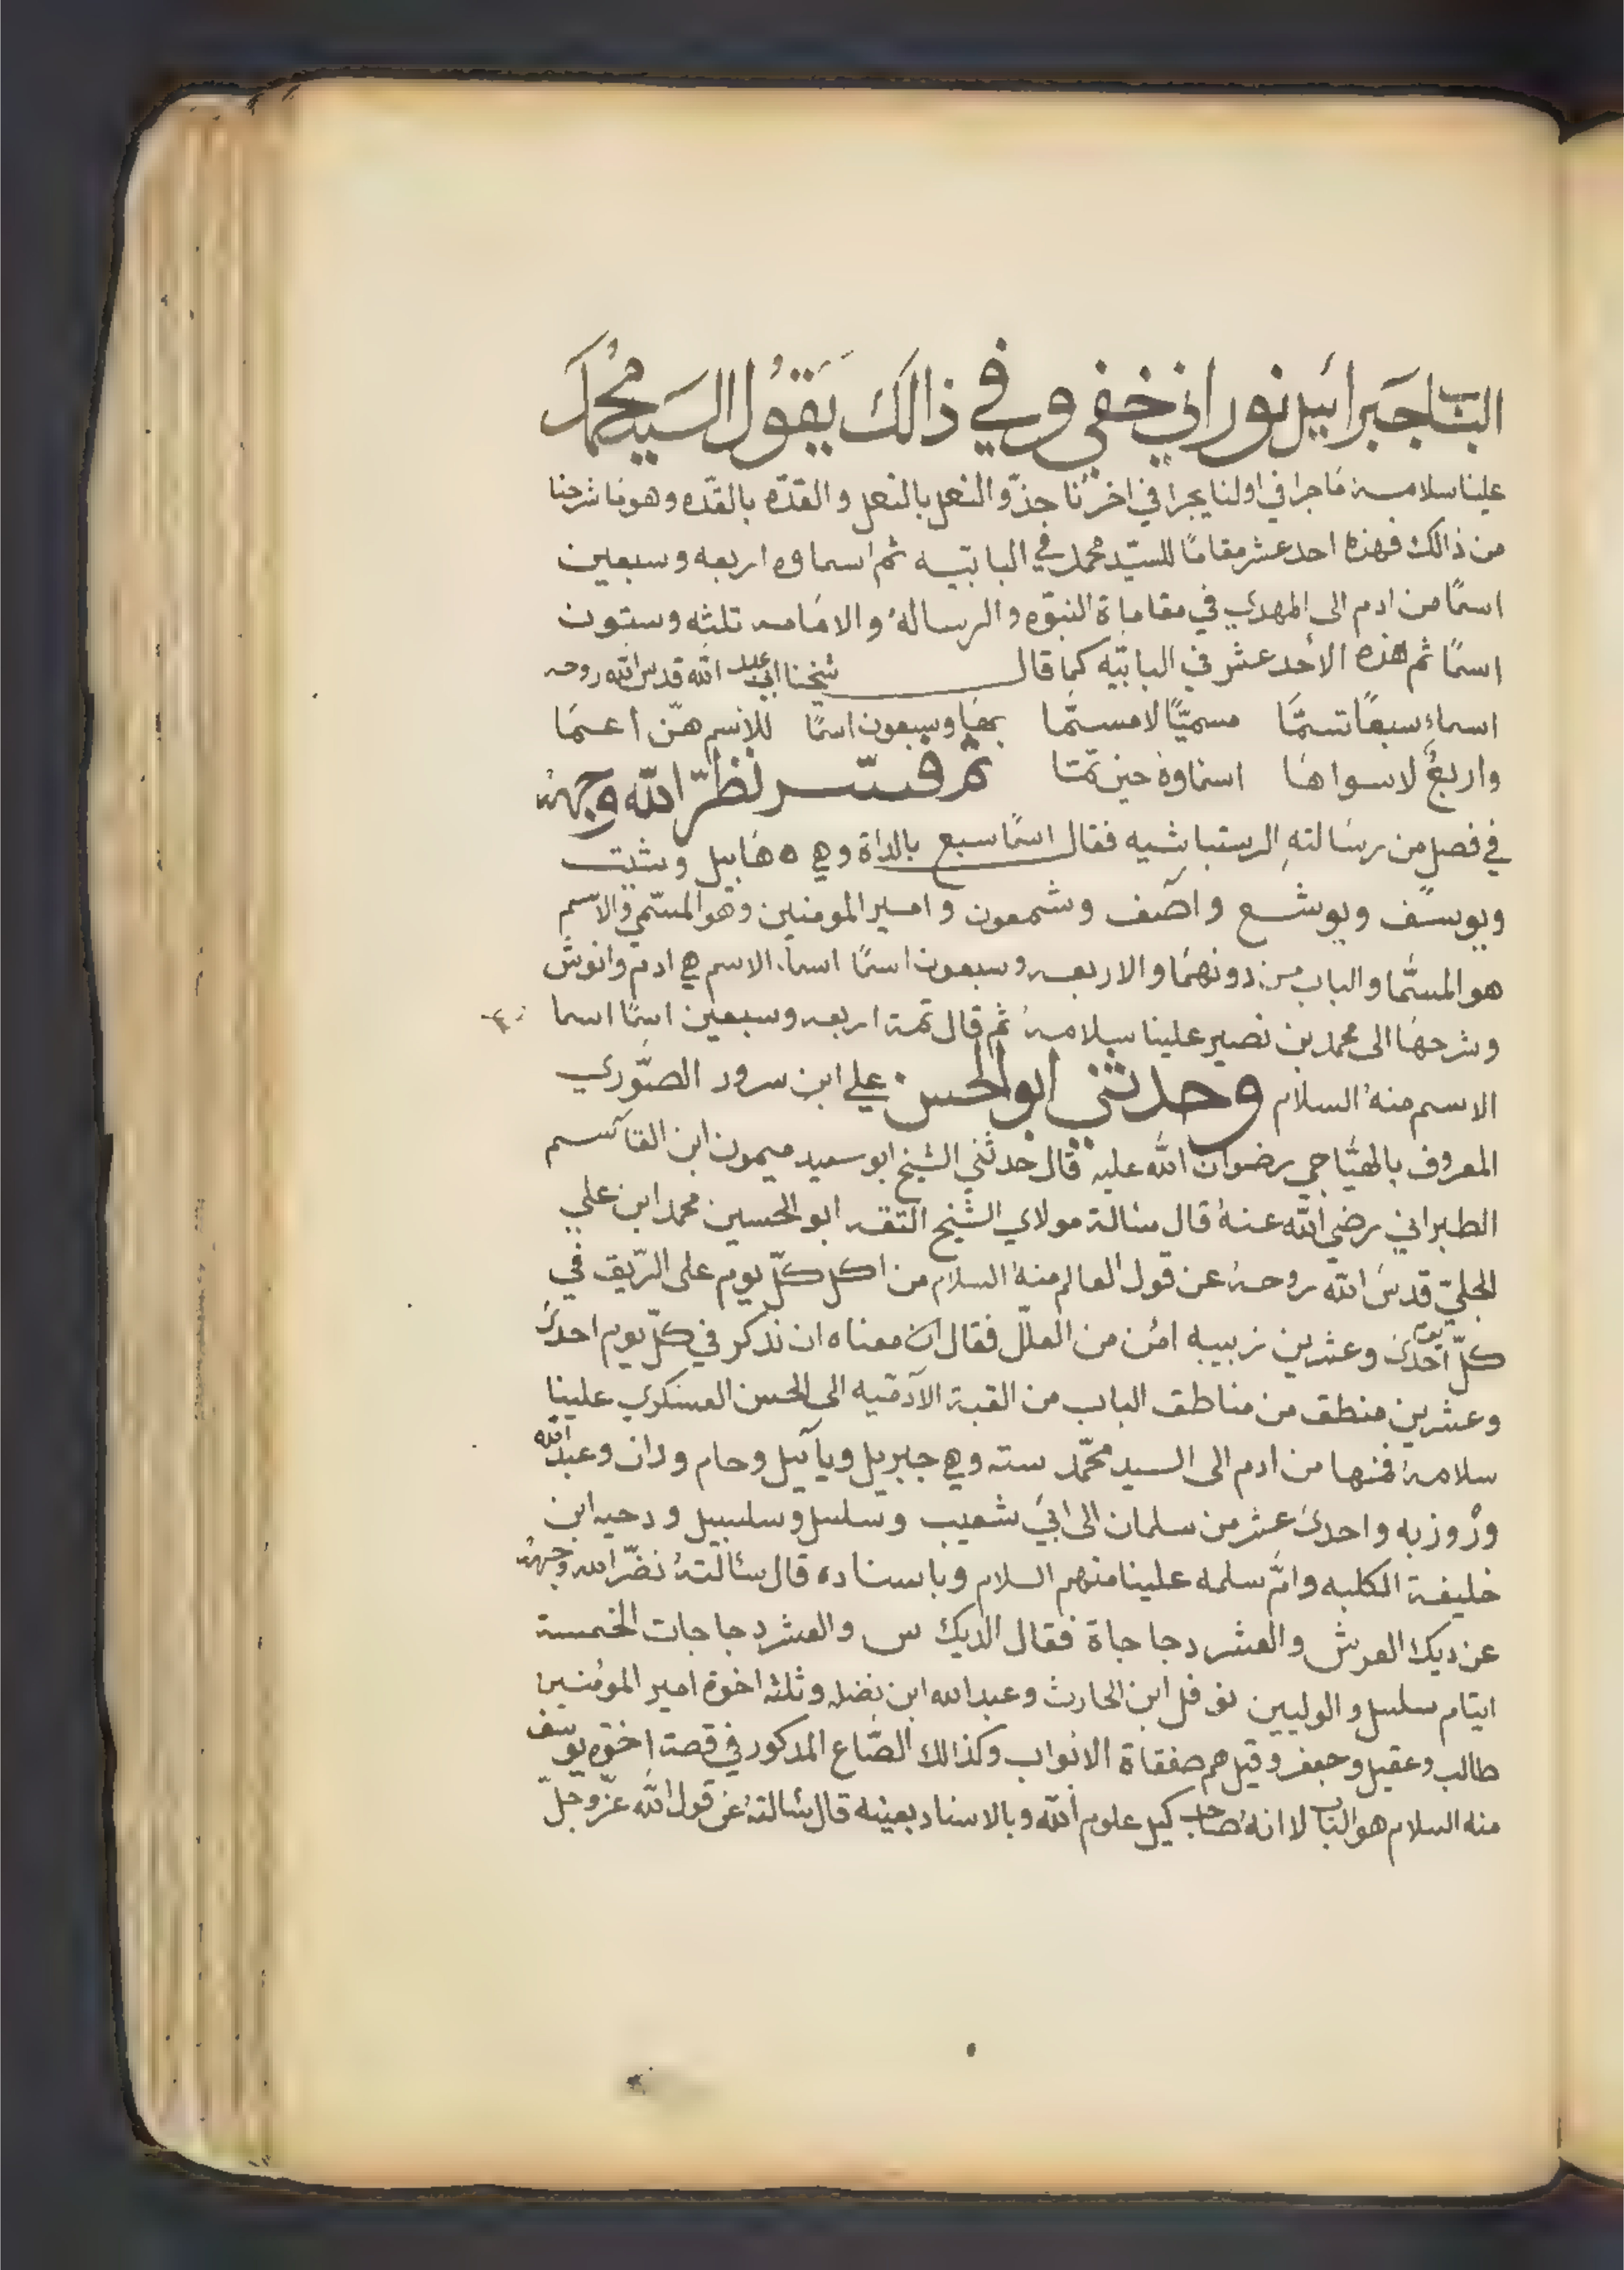 الباب جبرائيل نوراني خفي وفي ذالك يقول السيد محمد
علينا سلامه ما جرا في اولنا يجرا في اخرنا جذو النعل بالنعل والقدّه بالقدّه وهو ما شرحنا
من ذالك فهذه احد عشر مقامًا للسيّد محمد في البابيّه ثم اسماوه اربعه وسبعين
اسمًا من ادم الى المهدي في مقاماة النبوّه والرساله والامامه تلثه وستون
اسمًا ثم هذه الأحد عشر في البابيّه كما قال شيخنا ابي عبد الله قدس الله روحه
اسماء سبعًا تسمَّا مسميًّا لا مستمّا بمعنا وسبعون اسمًا للاسم هنّ أعمَا
واربعٌ لاسواها اسماوه حين تمّتا ثم فسّر نظرّ الله وجهه
في فصل من رسالته الرستباشيه فقال اسمًا سبع بالداة وهي ه هابيل وشيت
ويوسف ويوشع وآصف وشمعون وامير المومنين وهو المسمّي والاسم
هو المسمّا والباب من دونهما والاربعه وسبعون اسمًا اسماء الاسم هي ادم وانوش
وشرحها الى محمد بن نصير علينا سلامه ثم قال تمة اربعه وسبعين اسمًا اسما
الاسم منه السلام وحدثني ابو الحسن علي ابن سرور الصّوري
المعروف بالهيّاجي رضوان الله عليه قال حدثني الشيخ ابو سعيد ميمون ابن القاسم
الطبراني رضي الله عنه قال سالة مولاي الشيخ الثقه ابو الحسين محمد ابن علي
الجليّ قدس الله روحه عن قول العالم منه السلام من اكل كلّ يوم على الرّيق في
كلّ يوم احدى وعشرين زبيبه امن من العلل فقال ان معناه ان نذكر في كلّ يوم احدى
وعشرين منطق من مناطق الباب من القبة الآدميه الى الحسن العسكري علينا
سلامه فمنها من ادم الى السيد محمّد سته وهي جبريل ويآييل وحام ودان وعبد الله
وروزبه واحدى عشر من سلمان الى ابي شعيب وسلسل وسلسبيل ودحيه ابن
خليفة الكلبه وامّ سلمه علينا منهم السلام وباسناده قال سئالته نضّر الله وجهه
عن ديك العرش والعشر دجاجاة فقال الديك س والعشر دجاجات الخمسة
ايتام سلسل والوليين نوفل ابن الحارث وعبد الله ابن نضله وثلثه اخوة امير المؤمنين
طالب وعقيل وجعفر وقيل هم صفقاة الابواب وكذالك الصّاع المذكور في قصة اخوّه يوسف
منه السلام هو الباب لا انه صاحب كيل علوم الله وبالاسناد بعينه قال سئالته عن قول الله عزّ وجلّ